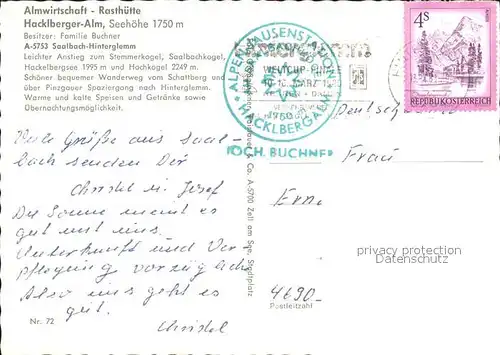 Almwirtschaft - Rasthütte
Hacklberger-Alm, Seehöhe 1750 m
Besitzer: Familie Buchner
A-5753 Saalbach-Hinterglemm
Leichter Anstieg zum Stemmerkogel, Saalbachkogel,
Hackelbergsee 1995 m und Hochkogel 2249 m.
Schöner bequemer Wanderweg vom Schattberg und
über Pinzgauer Spaziergang nach Hinterglemm.
Warme und kalte Speisen und Getränke sowie
Übernachtungsmöglichkeit.
ALPEN JAUSENSTATION
HACKLBERGALM
1750
WELTCUP
KOCH. BUCHNER
4S
REPUBLIK ÖSTERREICH
Viele Grüße aus Saal-
bach senden Dir
Christel u. Josef
Die Sonne meint es
gut mit uns.
Unterkunft und Ver-
pflegung vorzüglich
Also uns geht es
gut.
Christel
Nr. 72
& Co. A-5700 Zell am See, Stadtplatz
Deutschland
Frau
Erna
4690
Postleitzahl
privacy protection
for AK-Ansichtskarten.com